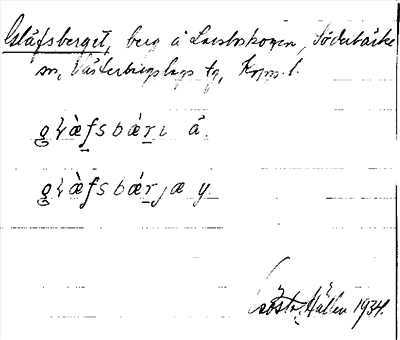 Glåfsberget, berg å Lersbskogen, Söderbärke
sn, Västerbergslags tg, Kopp. l.
gɭæ̀fsbárɩ å.
gɭæ̀fsbárjæ y.
Gösta Hällen 1934.